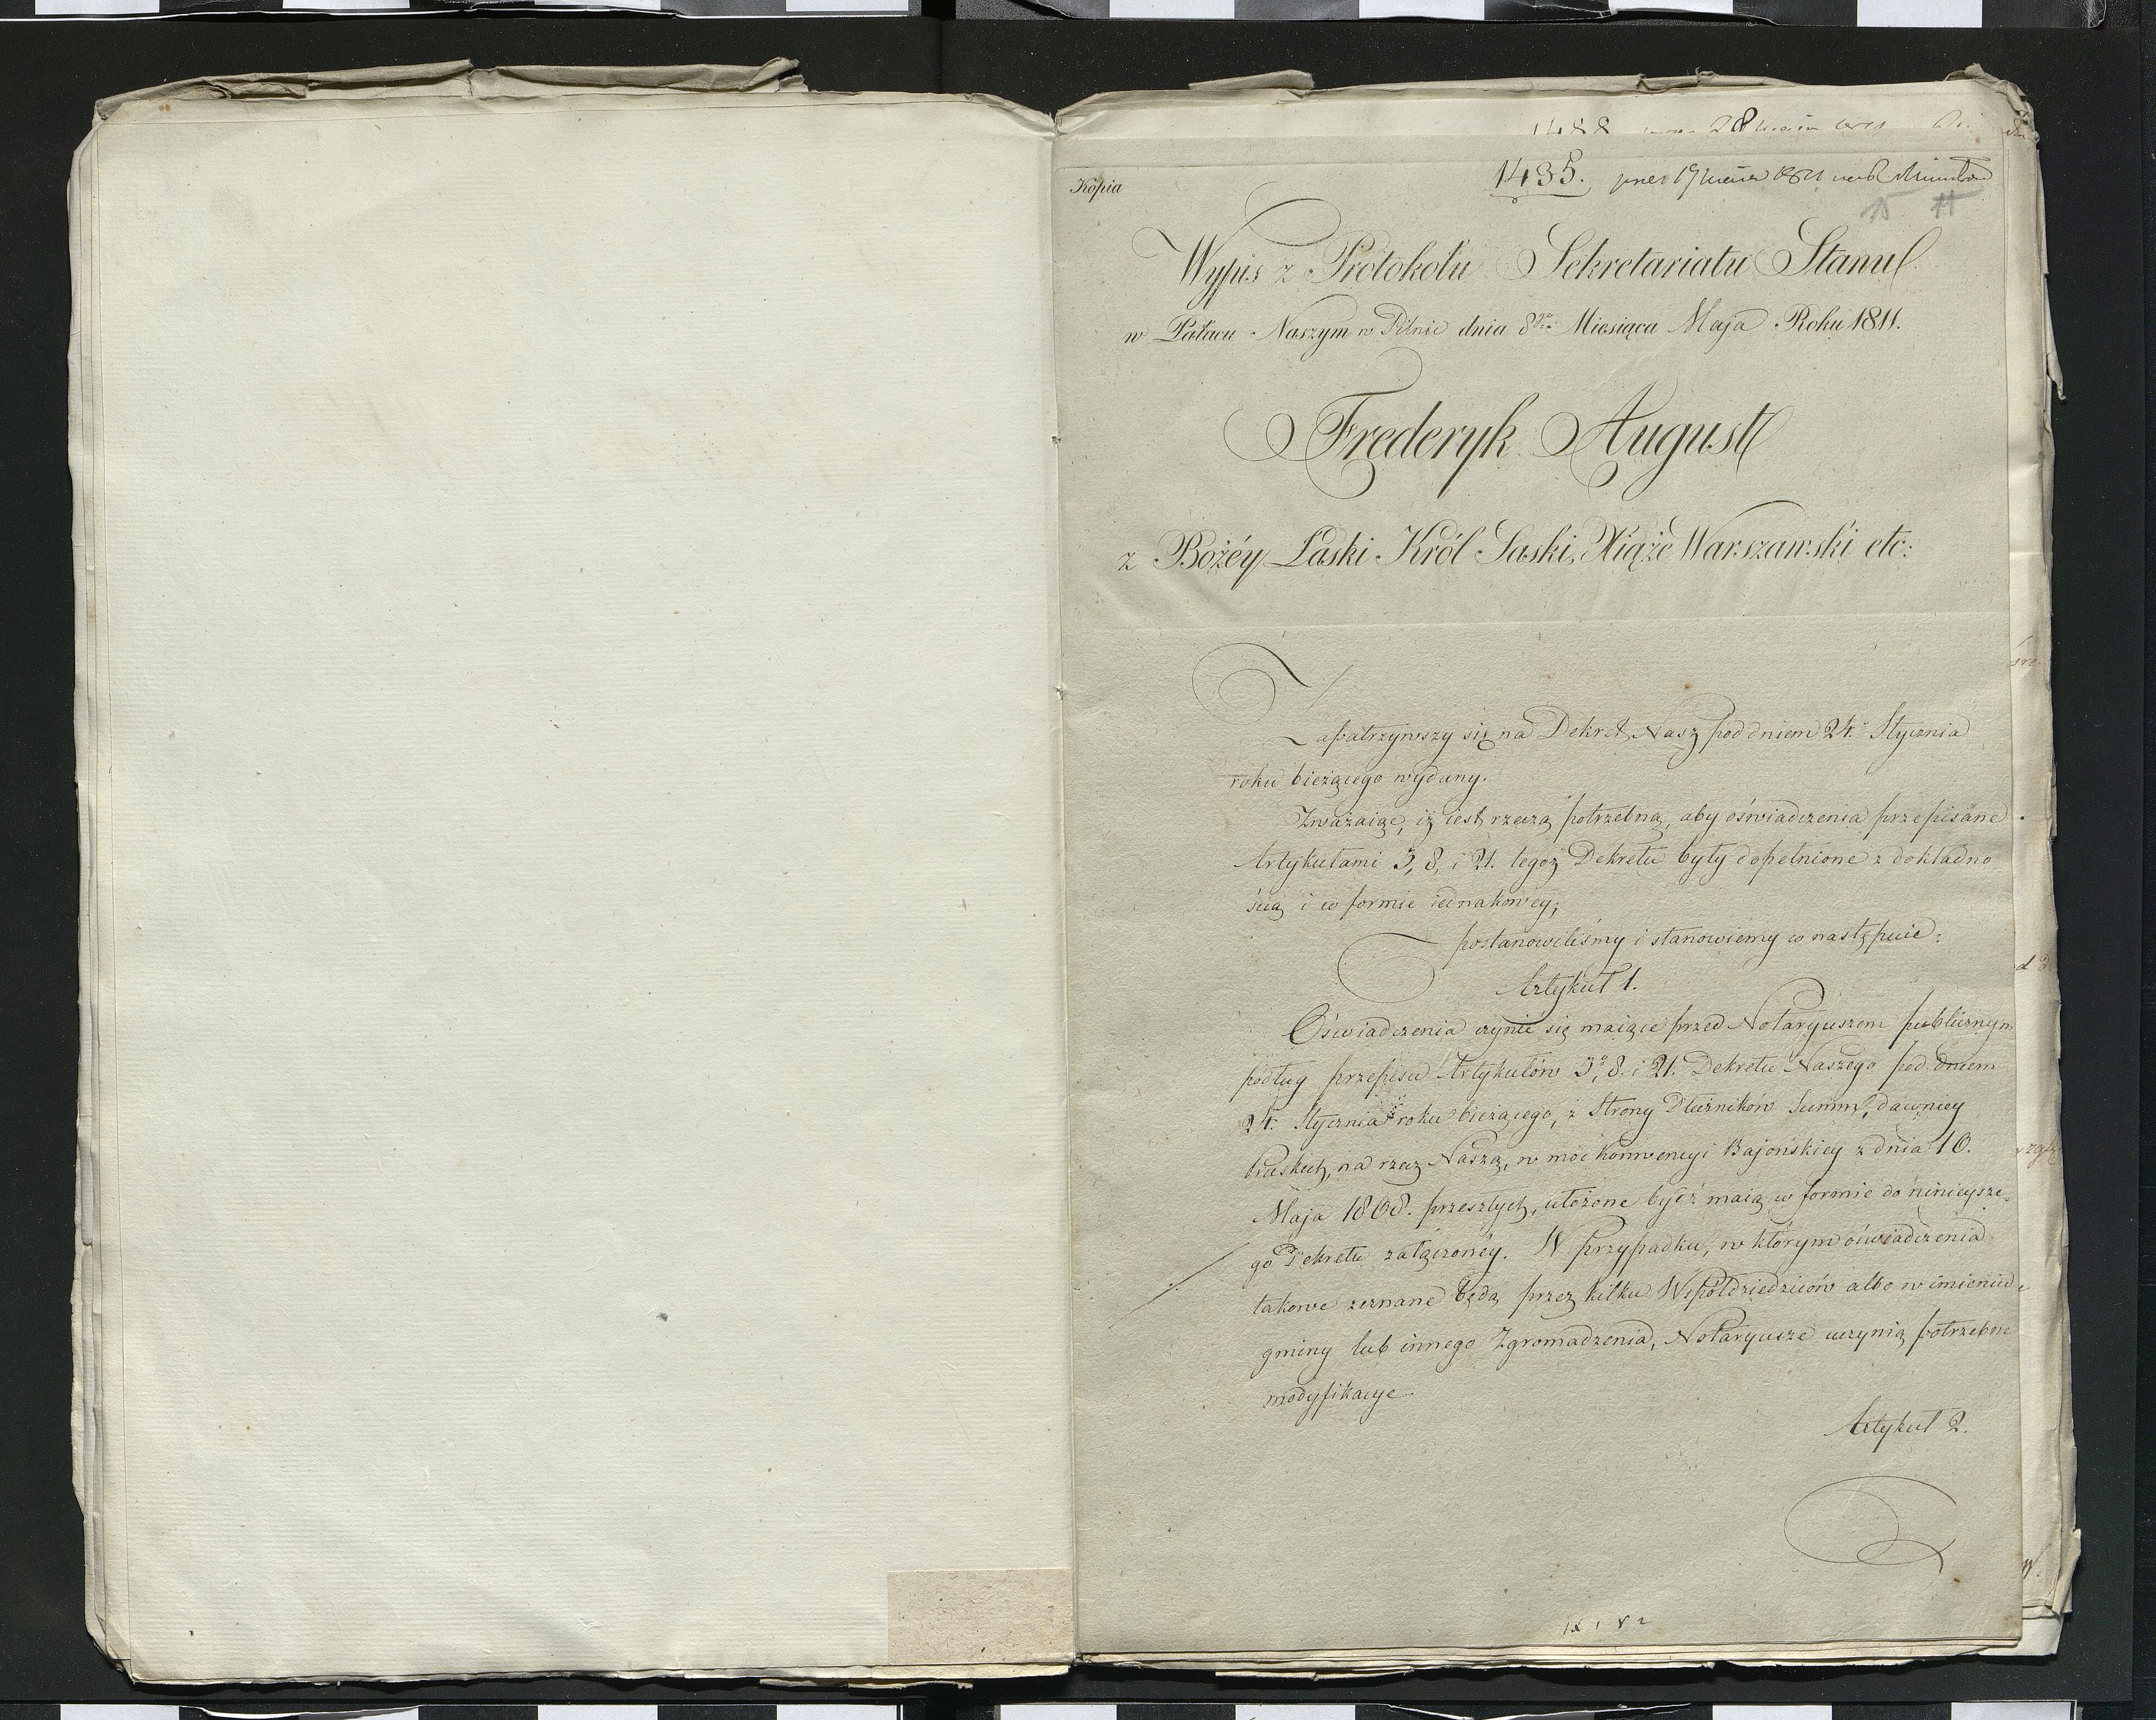 Kopia
1435.
Wypis z Protokołu Sekretariatu Stanu
w Pałacu Naszym w Pilnic dnia 8go Miesiąca Maja Roku 1811.
Frederyk August
z Bożéy Łaski Król Saski, Xiąże Warszawski etc:
Zapatrzywszy się na Dekret Nasz pod dniem 24. Stycznia
roku bieżącego wydany.
Zważaiąc, iż iest rzeczą potrzebną, aby oświadczenia przepisane
Artykułami 3, 8, i 21. tegoż Dekretu były dopełnione z dokładno
ścią i w formie iednakowey;
postanowiliśmy i stanowiemy co następuie:
Artykuł 1.
Oświadczenia czynić się maiące przed Notaryuszem publicznym
podług przepisu Artykułów 3, 8. i 21. Dekretu Naszego pod dniem
24. Stycznia roku bieżącego, z strony Dłużników Summ, dawniey
Pruskich, na rzecz Naszą, w moc Konwencyi Bajońskiey z dnia 10.
Maja 1808. przeszłych, ułożone bydź maią w formie do ninieysze-
go Dekretu załączonéy. W przypadku, w którym oświadczenia
takowe zeznane będą przez kilku Współdziedziców albo w imieniu
gminy lub innego Zgromadzenia, Notaryusze uczynią potrzebne
modyfikacye.
Artykuł 2.